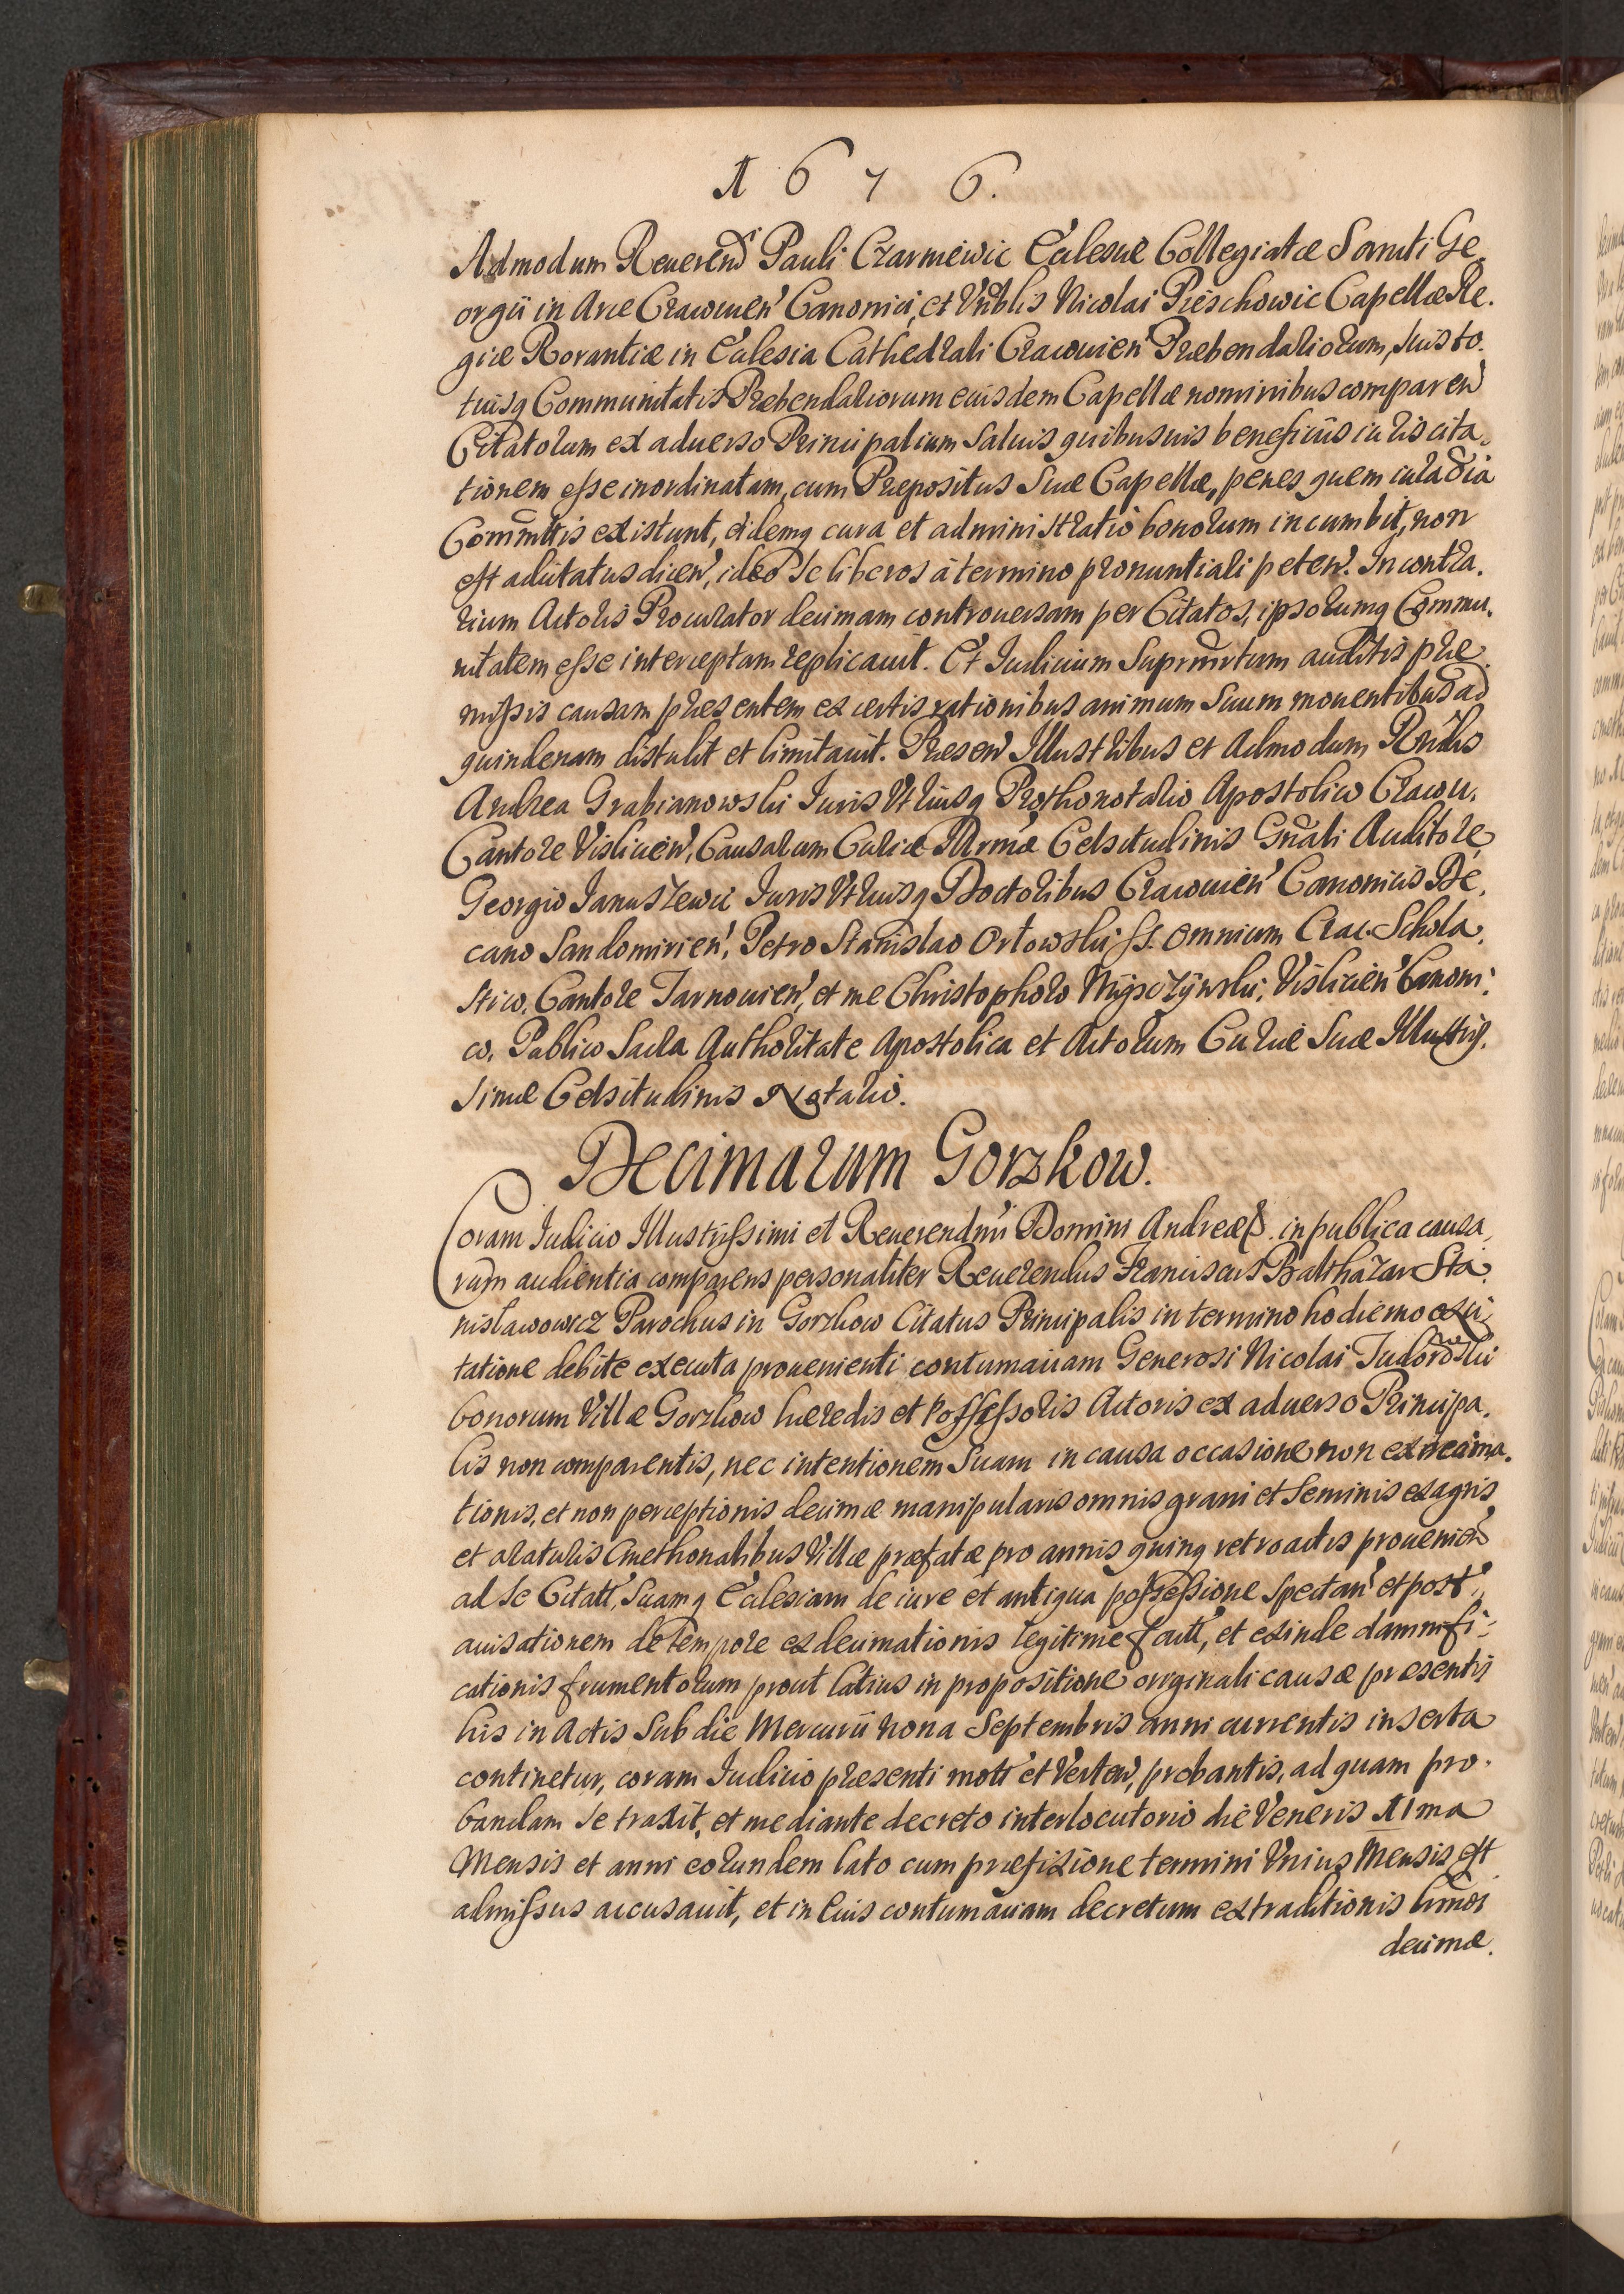 1676.
Admodum Reuerend' Pauli Czarniewic Eccl'esiæ Collegiatæ Sancti Ge-
orgii in Arce Cracouien' Canonici, et Vnblis Nicolai Pieschowic Capellæ Re-
giæ Rorantiæ in Eccl'esia Cathedrali Cracouien' Præbendariorum, suis to-
tiusq Communitatis Præbendariorum eiusdem Capellæ nominibus comparen'
Citatorum ex aduerso Principalium Saluis quibusuis beneficiis iuris cita-
tionem esse inordinatam, cum Præpositus Suæ Capellæ, penes quem iura dia
Commttis existunt, eidemq cura et administratio bonorum incumbit, non
est adcitatus dicen', ideo se liberos à termino pronuntiali peten'. In contra-
rium Actoris Procurator decimam controuersam per Citatos, ipsorumq Commu-
nitatem esse interceptam replicauit. Et Iudicium Suprmtum auditis præ-
missis causam præsentem ex certis rationibus animum Suum mouentibus ad
quindenam distulit et limitauit. Præsen' Illustribus et Admodum Rndis
Andrea Grabianowski Iuris Vtriusq Prothonotario Apostolico Cracou.
Cantore Vislicien', Causarum Curiæ Illrmæ Celsitudinis Gnali Auditore
Georgio Januszewic Iuris Vtriusq Doctoribus Cracouien' Canonicis De-
cano Sandomirien', Petro Stanislao Orłowski SS. Omnium Crac. Schola-
stico, Cantore Tarnouien', et me Christophoro Mijsczÿnski, Vislicien' Canoni-
co, Publico Sacra Authoritate Apostolica et Actorum Curiæ Suæ Illustris-
simæ Celsitudinis Notario.
Decimarum Gorzkow.
Coram Iudicio Illustrissimi et Reuerendmi Domini Andreæ &. in publica causa-
rum audientia comparens personaliter Reuerendus Franciscus Balthazar Sta-
nisławowicz Parochus in Gorzkow Citatus Principalis in termino hodierno ex ci-
tatione debite executa prouenienti contumaciam Generosi Nicolai Tudorowski
bonorum Villæ Gorzkow hæredis et Possessoris Actoris ex aduerso Principa-
lis non comparentis, nec intentionem Suam in causa occasione non exdecima-
tionis, et non perceptionis decimæ manipularis omnis grani et Seminis ex agris
et araturis Cmethonalibus Villæ præfatæ pro annis quinq retroactis prouenien'
ad se Citatt', Suamq Eccl'esiam de iure et antiqua possessione Spectan' et post
auisationem de tempore exdecimationis legitime factt', et exinde damnifi-
cationis frumentorum prout latius in propositione originali causæ præsentis
his in Actis Sub die Mercurii nona Septembris anni currentis inserta
continetur, coram Iudicio præsenti mott' et Verten', probantis, ad quam pro-
bandam se traxit, et mediante decreto interlocutorio die Veneris 11ma
Mensis et anni eorundem lato cum præfixione termini Vnius Mensis est
admissus accusauit, et in eius contumaciam decretum extraditionis hmoi
decimæ.